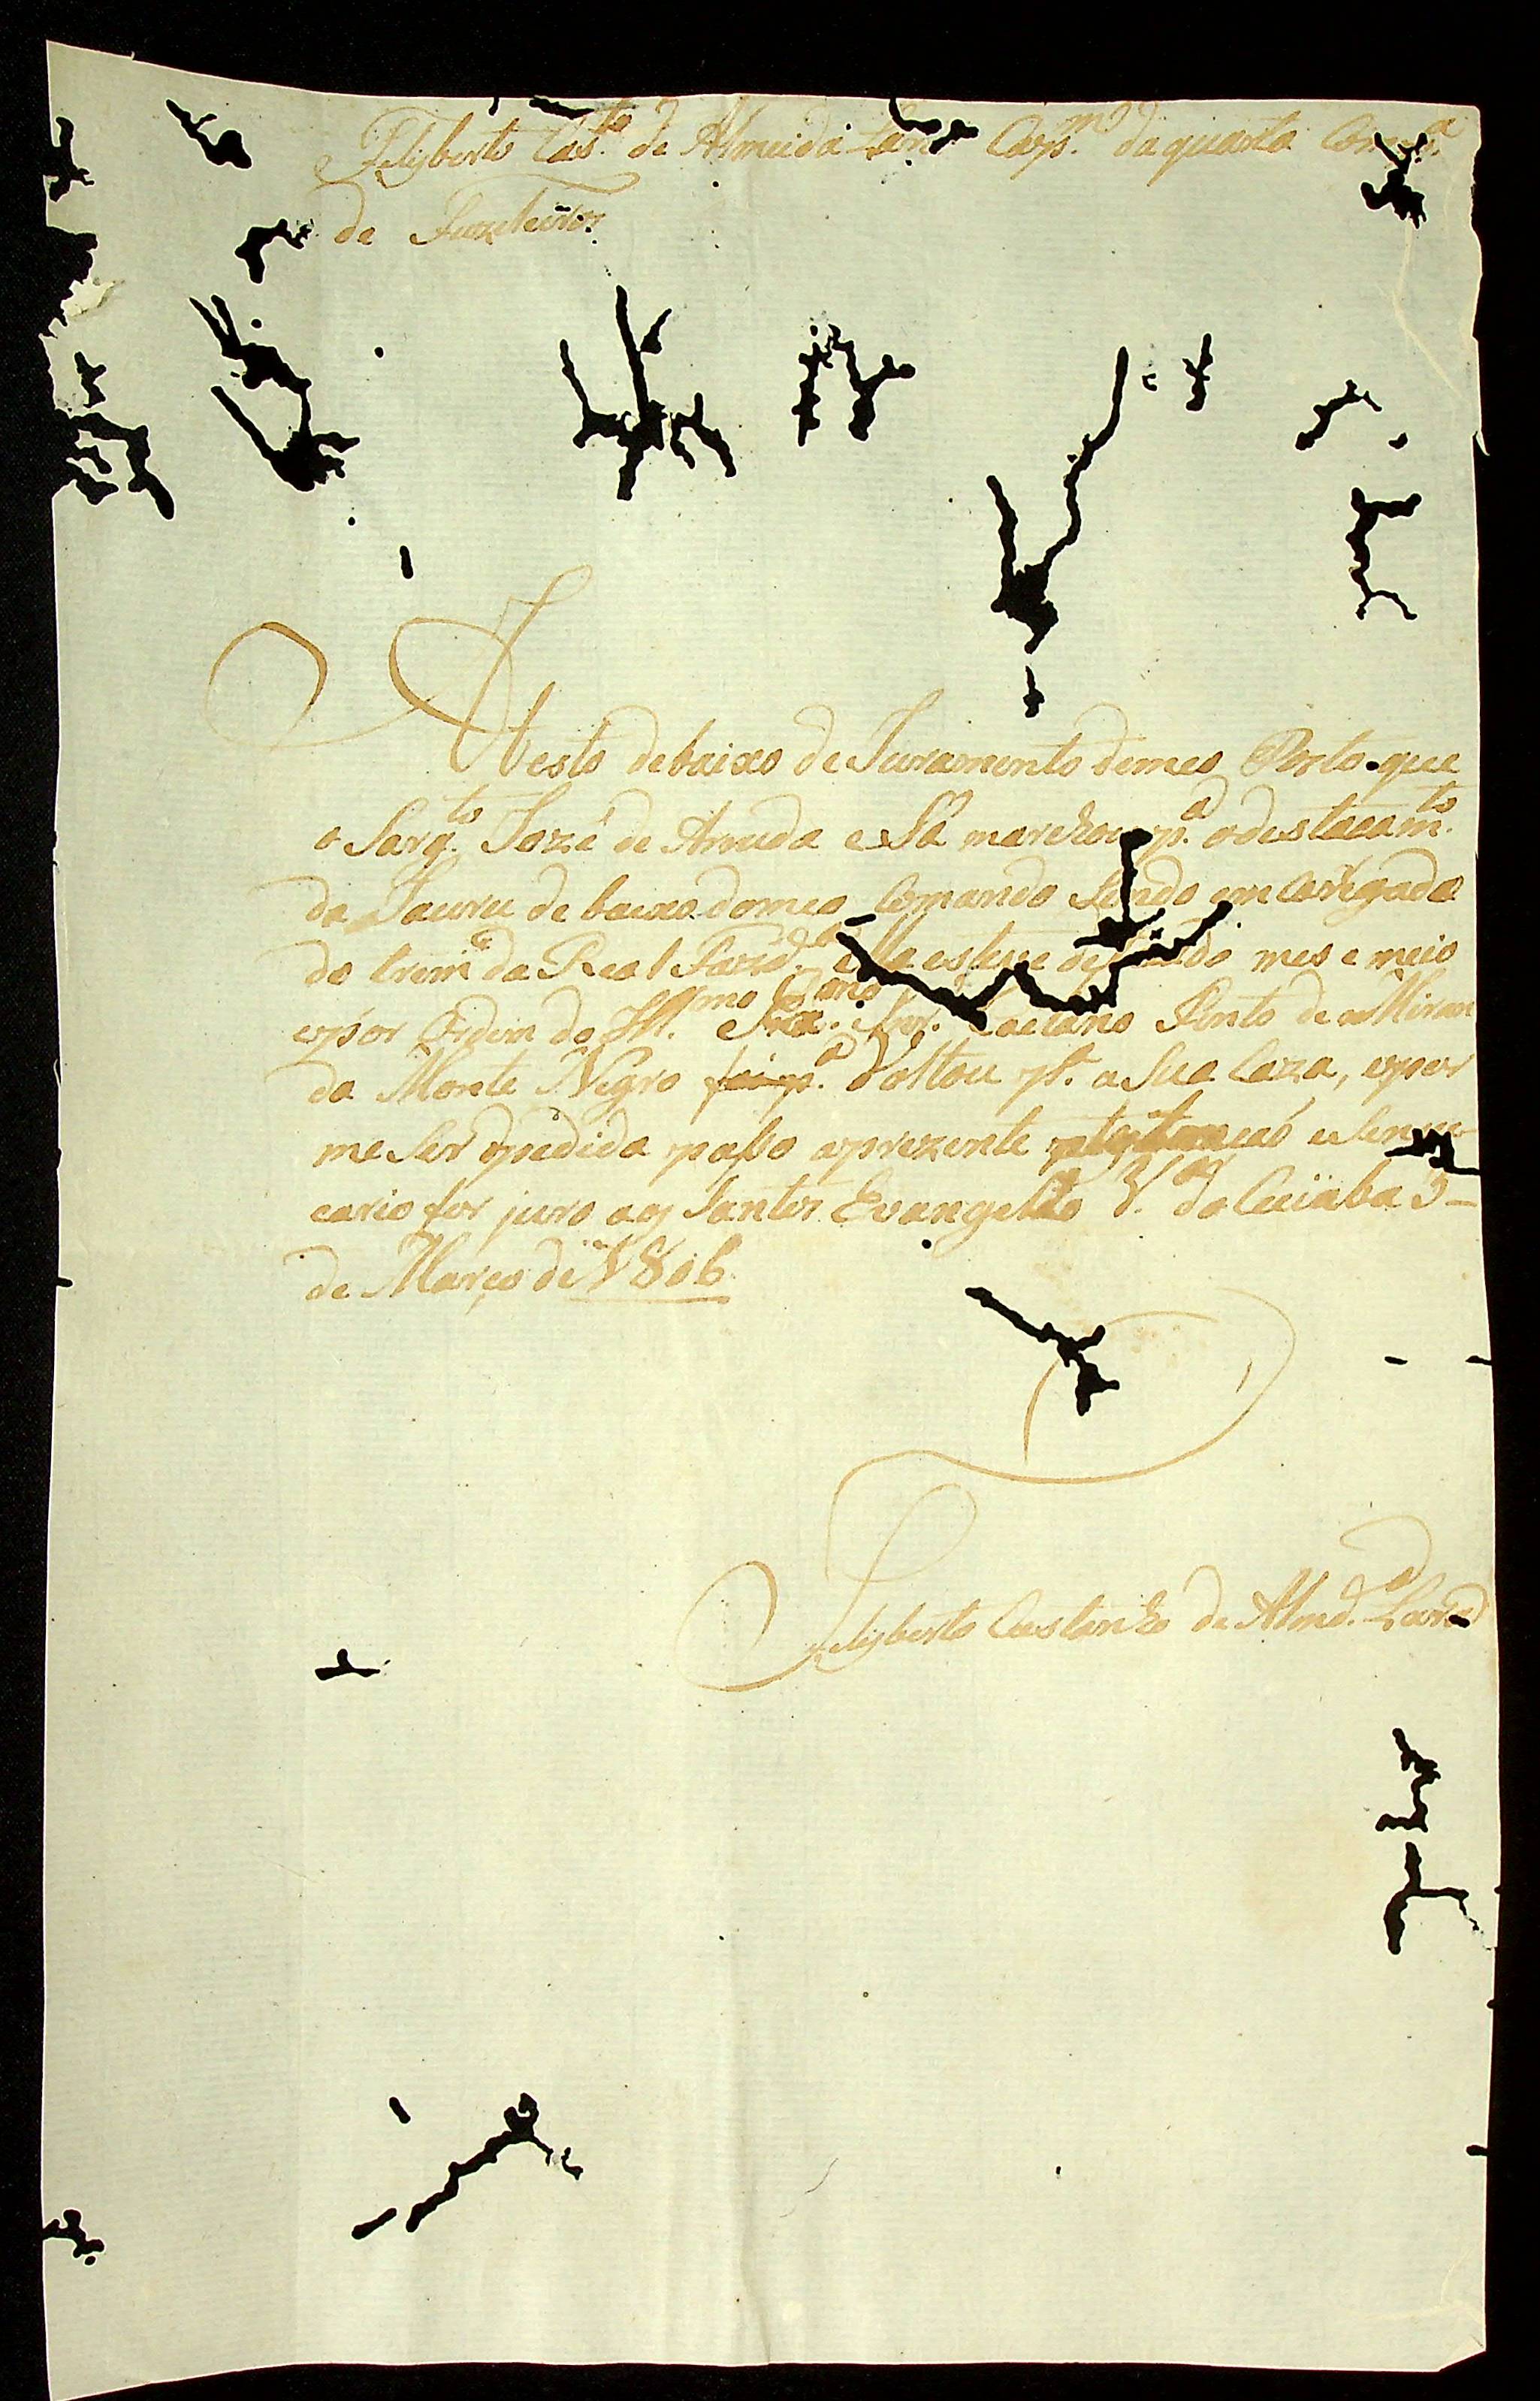 Felisberto Cas.to de Almeida Cap.m da quarta
de Fuzileiros
Atesto debaixo de Juramento demeo Posto que
o Sarg.to Jozé de Arruda e Sá marchou p.a odestacam.to
do Jauru de baixo domeo Comando sendo emcarregado
do trem da Real Fazd.a e lla esteve mes e meio
epor Ordem do Ill.mo e Ex.mo Snr. Caetano Pinto de Miran
da Monte Negro foi p.a Voltou p.a a Sua Caza, epor
me Ser pedida paso aprezente
cario for juro aos Santos Evangelho V.a do Cuiaba
de Março de 1806
Felisberto Castanho de Almd.a Lara